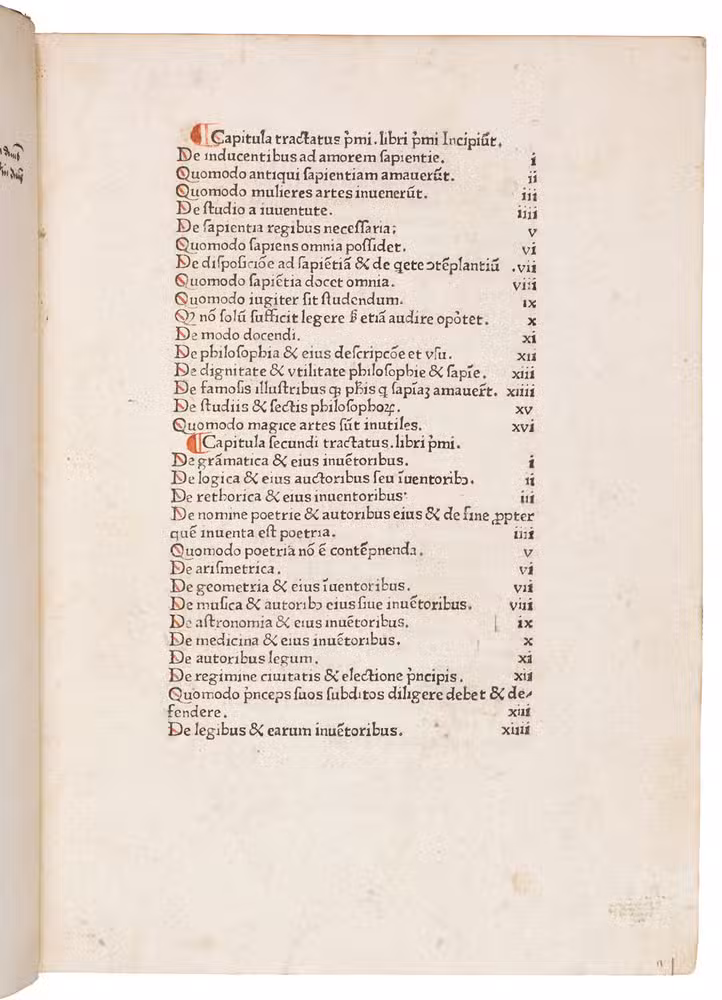 Capitula tractatus p̄mi. libri p̄mi Incipiūt.
De inducentibus ad amorem sapientie. i
Quomodo antiqui sapientiam amauerūt. ii
Quomodo mulieres artes inuenerūt. iii
De studio a iuuentute. iiii
De sapientia regibus necessaria; v
Quomodo sapiens omnia possidet. vi
De disposicōe ad sapiētiā & de qete ɔtēplantiū .vii
Quomodo sapiētia docet omnia. viii
Quomodo iugiter sit studendum. ix
nō solū sufficit legere etiā audire opōtet. x
De modo docendi. xi
De philosophia & eius descripcōe et vsu. xii
De dignitate & vtilitate philosophie & sapīe. xiii
De famosis illustribus qꝫ pħis q sapīaꝫ amauert̄. xiiii
De studiis & sectis philosophoꝝ. xv
Quomodo magice artes sūt inutiles. xvi
Capitula secundi tractatus. libri p̄mi.
De grāmatica & eius inuētoribus. i
De logica & eius auctoribus seu īuentoribꝫ. ii
De rethorica & eius inuentoribus· iii
De nomine poetrie & autoribus eius & de fine ꝓpter
quē inuenta est poetria. iiii
Quomodo poetria nō ē contēpnenda. v
De arismetrica. vi
De geometria & eius īuentoribus. vii
De musica & autoribꝫ eius siue inuētoribus. viii
De astronomia & eius inuētoribus. ix
De medicina & eius inuētoribus. x
De autoribus legum. xi
De regimine ciuitatis & electione p̄ncipis. xii
Quomodo p̄nceps suos subditos diligere debet & de⸗
fendere. xiii
De legibus & earum inuētoribus. xiiii